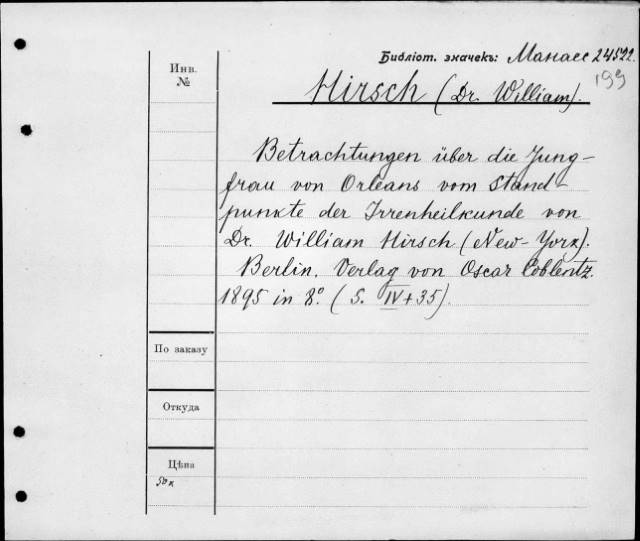 Библіот. значекъ: Манасе 24522.
199
Инв.
№
Hirsch (Dr. William).
Betrachtungen über die Jung-
frau von Orleans vom Stand-
punkte der Irrenheilkunde von
Dr. William Hirsch (New-York).
Berlin. Verlag von Oscar Coblentz.
1895 in 8º. (S. IV+35).
По заказу
Откуда
Цѣна
50 к